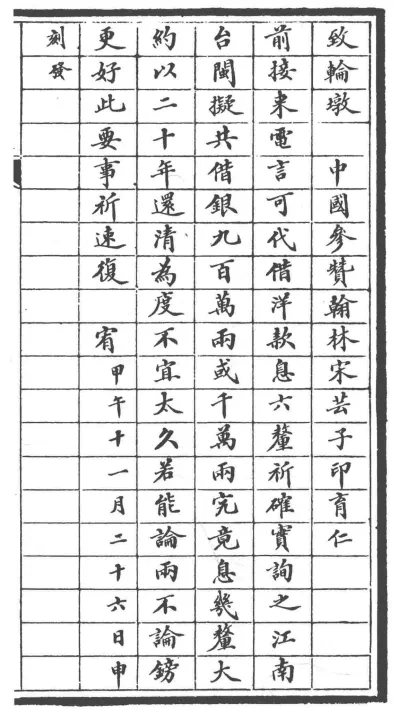 致輪墩　中國參贊翰林宋芸子印育仁
前接來電言可代借洋款息六釐祈確實詢之江南
台閩擬共借銀九百萬兩或千萬兩究竟息幾釐大
約以二十年還清為度不宜太久若能論兩不論鎊
更好此要事祈速復　宥甲午十一月二十六日申
刻發